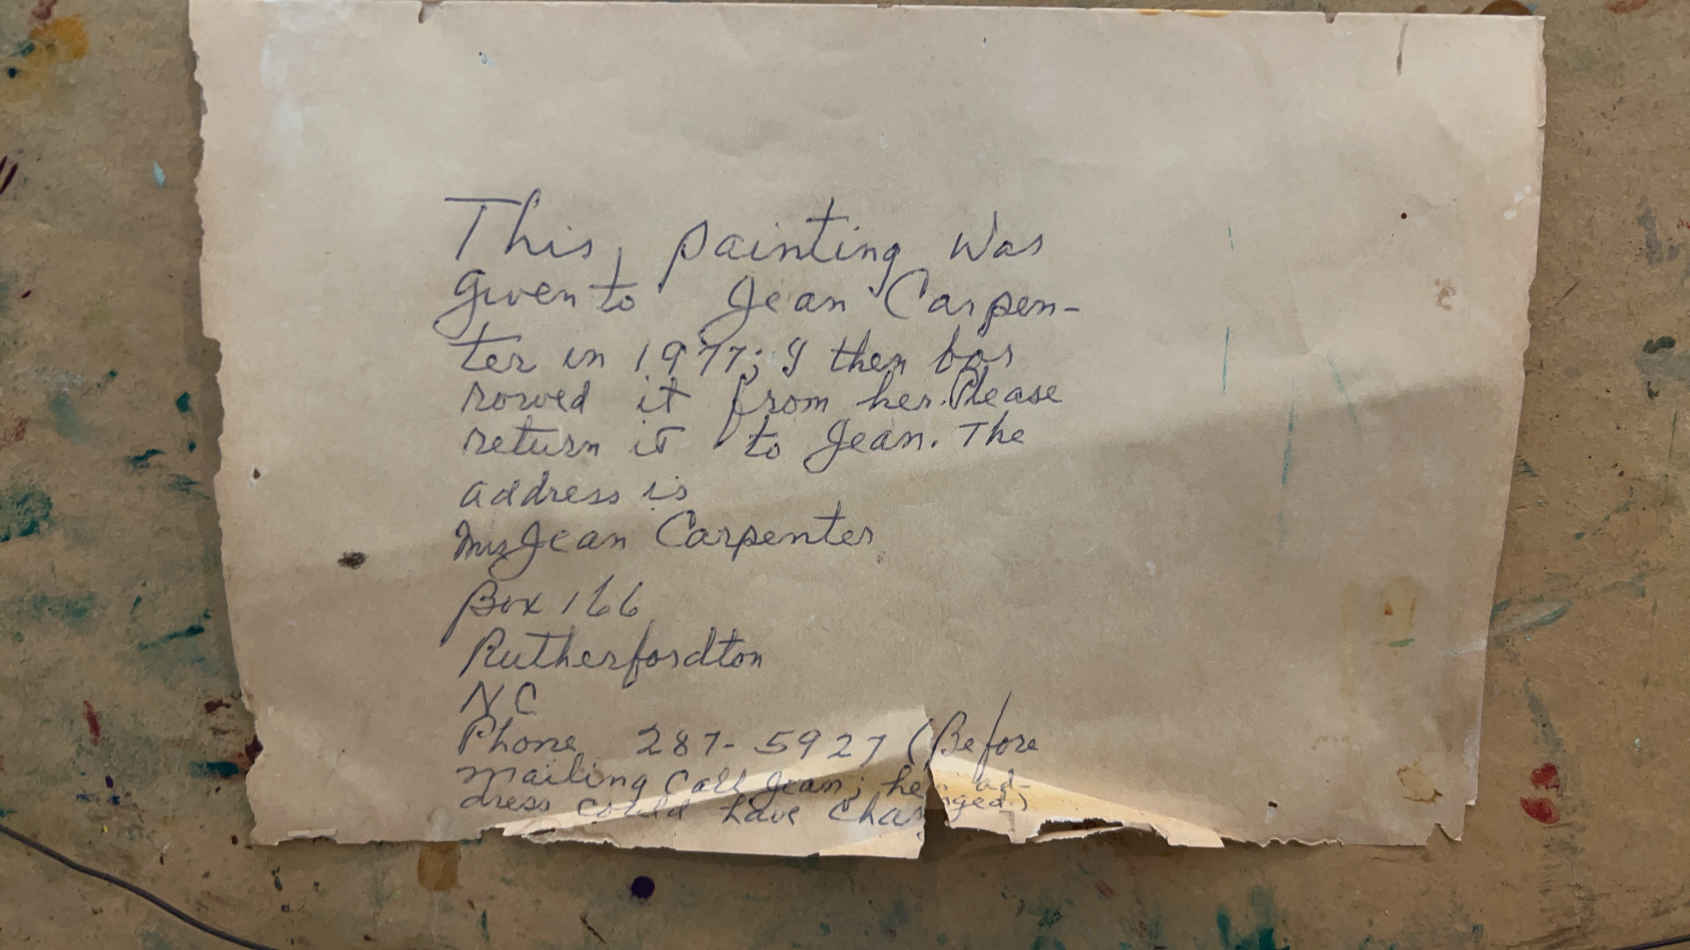 This painting was
given to Jean Carpen-
ter in 1977; I then bor
rowed it from her. Please
return it to Jean. The
address is
Mrs Jean Carpenter
Box 166
Rutherfordton
NC
Phone 287-5927 (Before
mailing call Jean; her ad-
dress could have changed.)